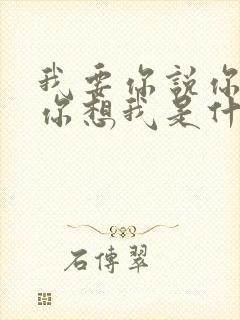 我要你說你
你想我是什
石傳翠